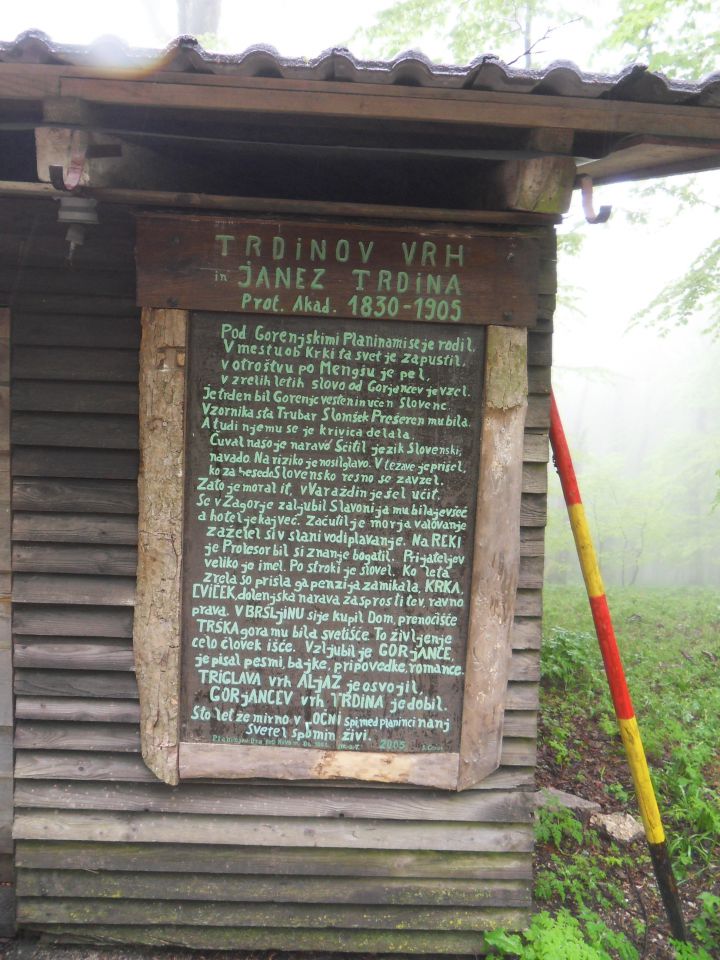 TRDiNOV VRH
in JANEZ TRDiNA
Prof. Akad. 1830-1905
Pod Gorenjskimi Planinami se je rodil,
V mestu ob Krki ta svet je zapustil,
v otroštvu po Mengšu je pel,
v zrelih letih slovo od Gorjancev je vzel.
Je trden bil Gorenjc vesten in učen Slovenc.
Vzornika sta Trubar Slomšek Prešeren mu bila.
A tudi njemu se je krivica delala.
Čuval našo je naravo Ščitil jezik Slovenski,
navado. Na riziko je nosil glavo. V težave je prišel,
ko za besedo Slovensko resno se zavzel.
Zato je moral it, v Varaždin je šel učit,
Se v Zagorje zaljubil Slavonija mu bila je všeč
a hotel je kaj več. Začutil je morja valovanje
zaželel si v slani vodi plavanje. Na REKi
je Profesor bil si znanje bogatil. Prijateljev
veliko je imel. Po stroki je slovel. Ko leta
zrela so prišla ga penzija zamikala, KRKA,
CViČEK, dolenjska narava za sprostitev, ravno
prava. V BRŠLJiNU si je kupil Dom, prenočišče
TRŠKA gora mu bila svetišče. To življenje
celo človek išče. Vzljubil je GORjANCE,
je pisal pesmi, bajke, pripovedke, romance.
TRiGLAVA vrh ALjAŽ je osvojil,
GORjANCEV vrh TRDiNA je dobil.
Sto let že mirno v LOČNi spi med planinci nanj
Svetel spomin živi.
2005